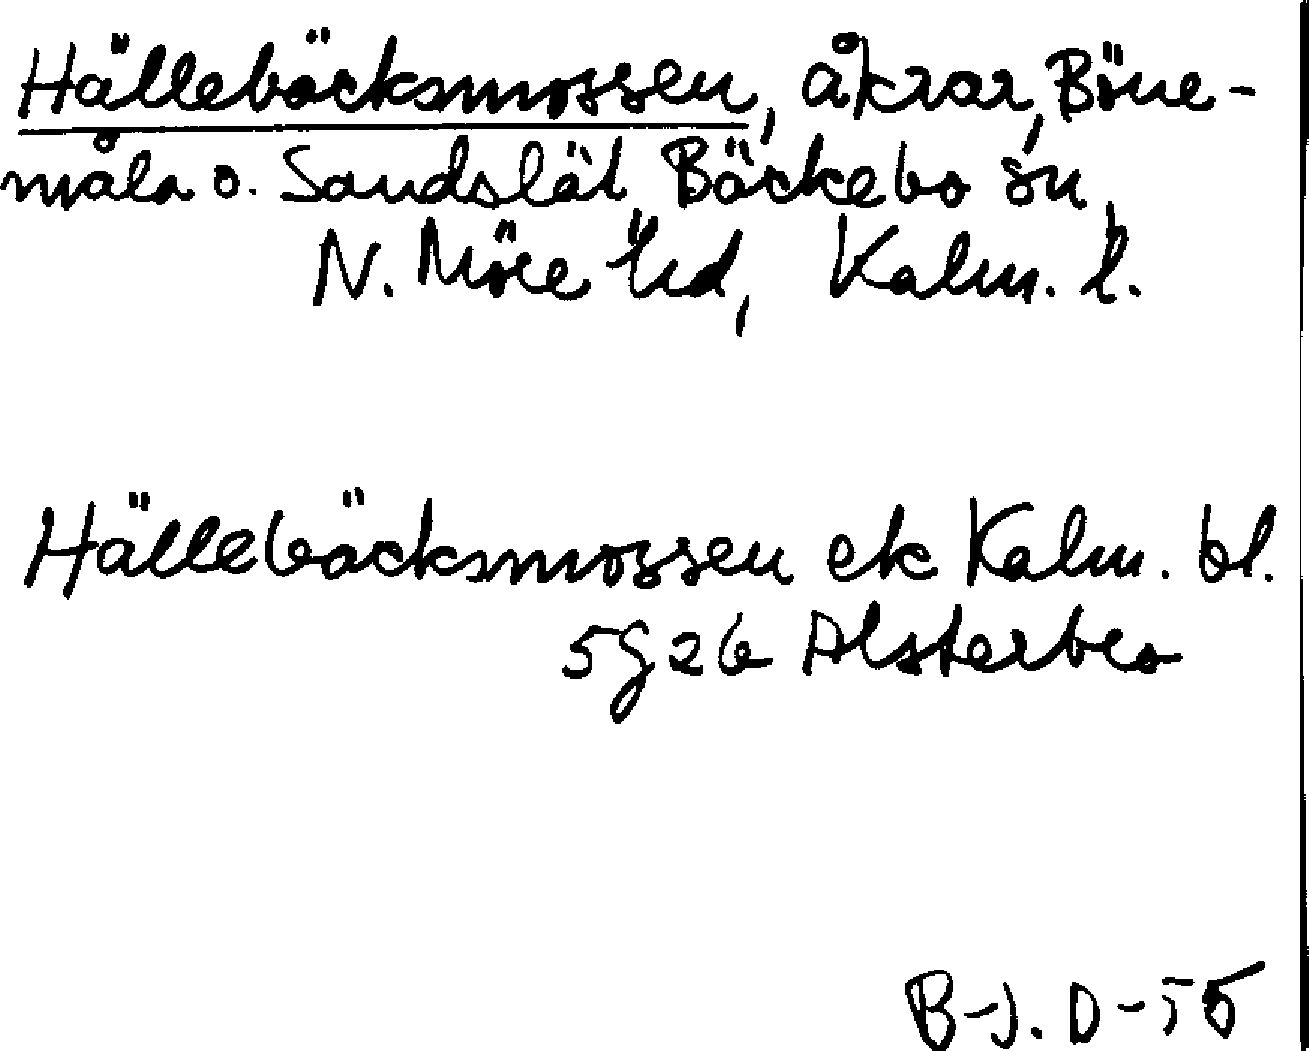 Hällebäcksmossen, åkrar, Böne-
måla o. Sandslät Bäckebo sn
N. Möre hd, Kalm. l.
Hällebäcksmossen ek Kalm. bl.
5g26 Alsterbro
B-J. D-55